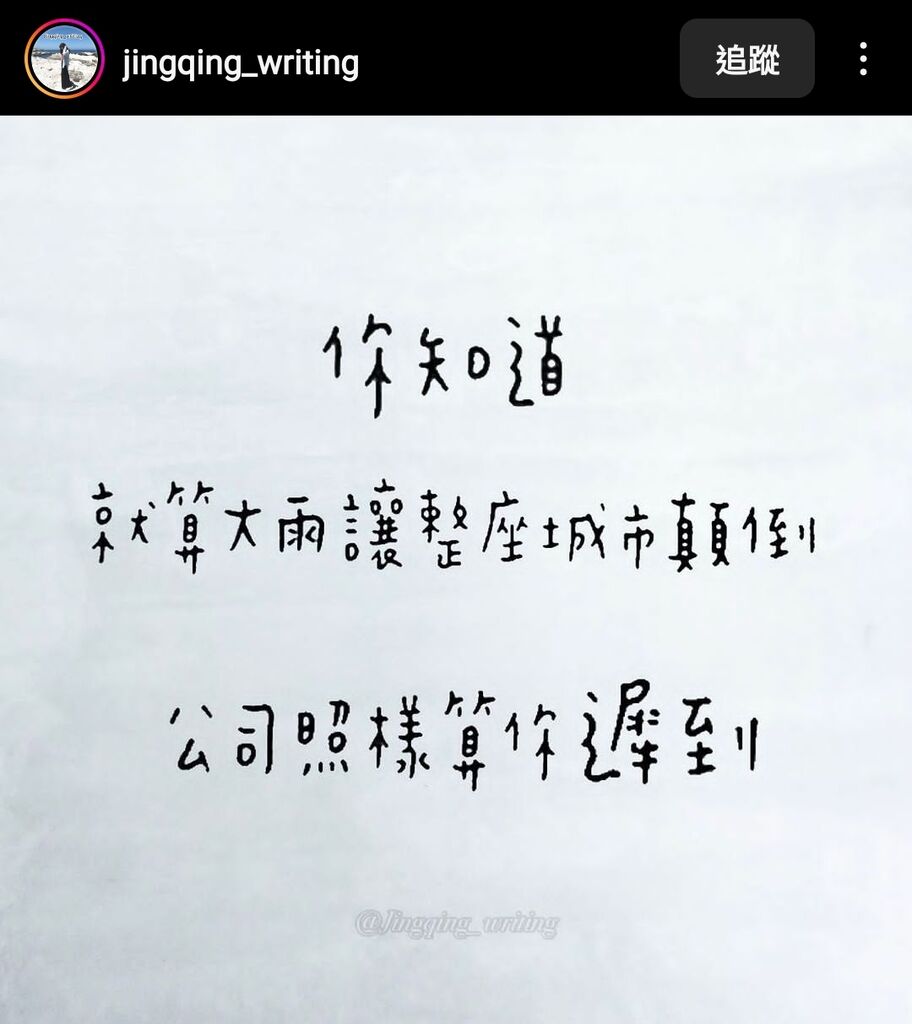 jingqing_writing
追蹤
你知道
就算大雨讓整座城市顛倒
公司照樣算你遲到
@Jingqing_writing